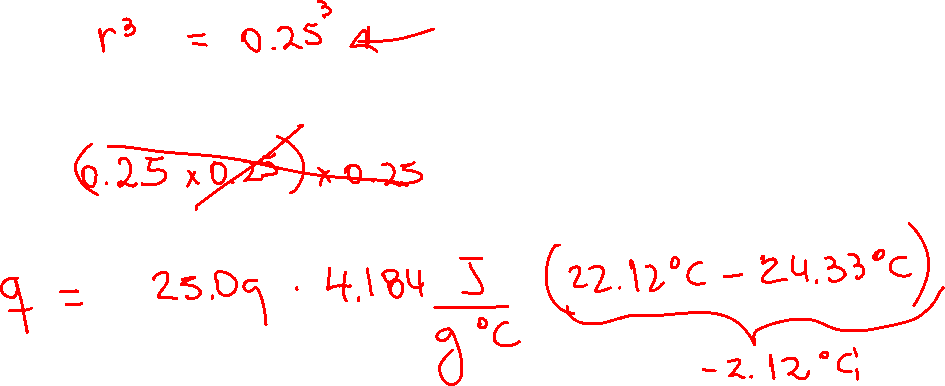 r³ = 0.25³
(0.25 x 0.25) x 0.25
q = 25.0g · 4.184 J/g°C (22.12°C - 24.33°C)
-2.12°C